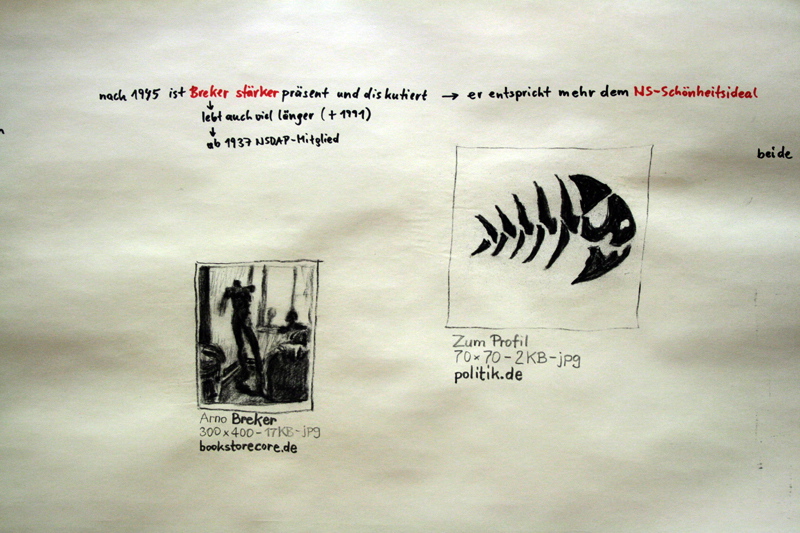 nach 1945 ist Breker stärker präsent und diskutiert → er entspricht mehr dem NS-Schönheitsideal
↓
lebt auch viel länger (+1991)
↓
ab 1937 NSDAP-Mitglied
beide
Zum Profil
70×70-2KB-jpg
politik.de
Arno Breker
300×400-17KB-jpg
bookstorecore.de